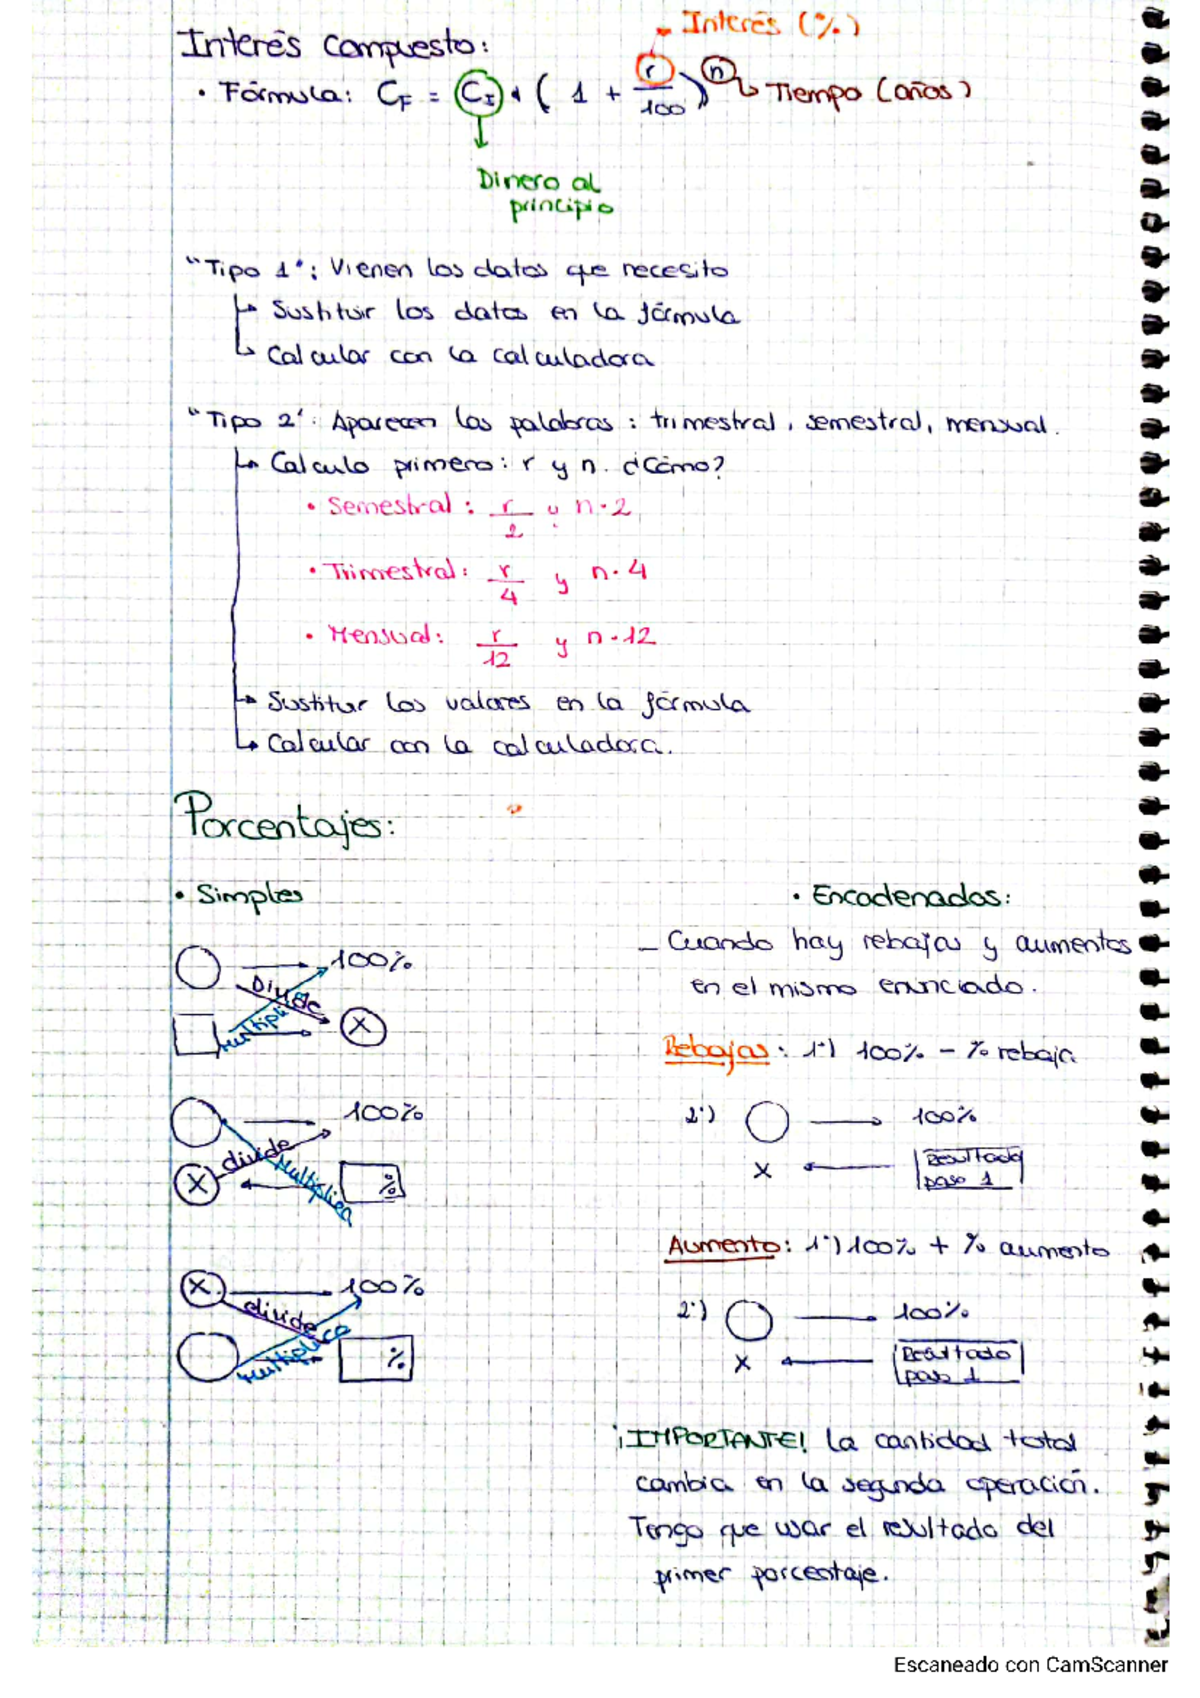 Interés (%)
Interés compuesto:
• Fórmula: C_F = C_I • ( 1 + r/100 )^n → Tiempo (años)
Dinero al
principio
"Tipo 1": Vienen los datos que necesito
↳ Sustituir los datos en la fórmula
↳ Calcular con la calculadora
"Tipo 2": Aparecen las palabras: trimestral, semestral, mensual.
↳ Calculo primero: r y n. ¿Cómo?
• Semestral: r/2 y n·2
• Trimestral: r/4 y n·4
• Mensual: r/12 y n·12
↳ Sustituir los valores en la fórmula
↳ Calcular con la calculadora.
Porcentajes:
• Simples
100%
Divide
Multiplica
X
100%
divide
Multiplica
X
%
X
100%
divide
Multiplica
%
• Encadenados:
- Cuando hay rebajas y aumentos
en el mismo enunciado.
Rebajas: 1º) 100% - % rebaja
2º) ◯ → 100%
X ← Resultado
paso 1
Aumento: 1º) 100% + % aumento
2º) ◯ → 100%
X ← Resultado
paso 1
¡IMPORTANTE! La cantidad total
cambia en la segunda operación.
Tengo que usar el resultado del
primer porcentaje.
Escaneado con CamScanner